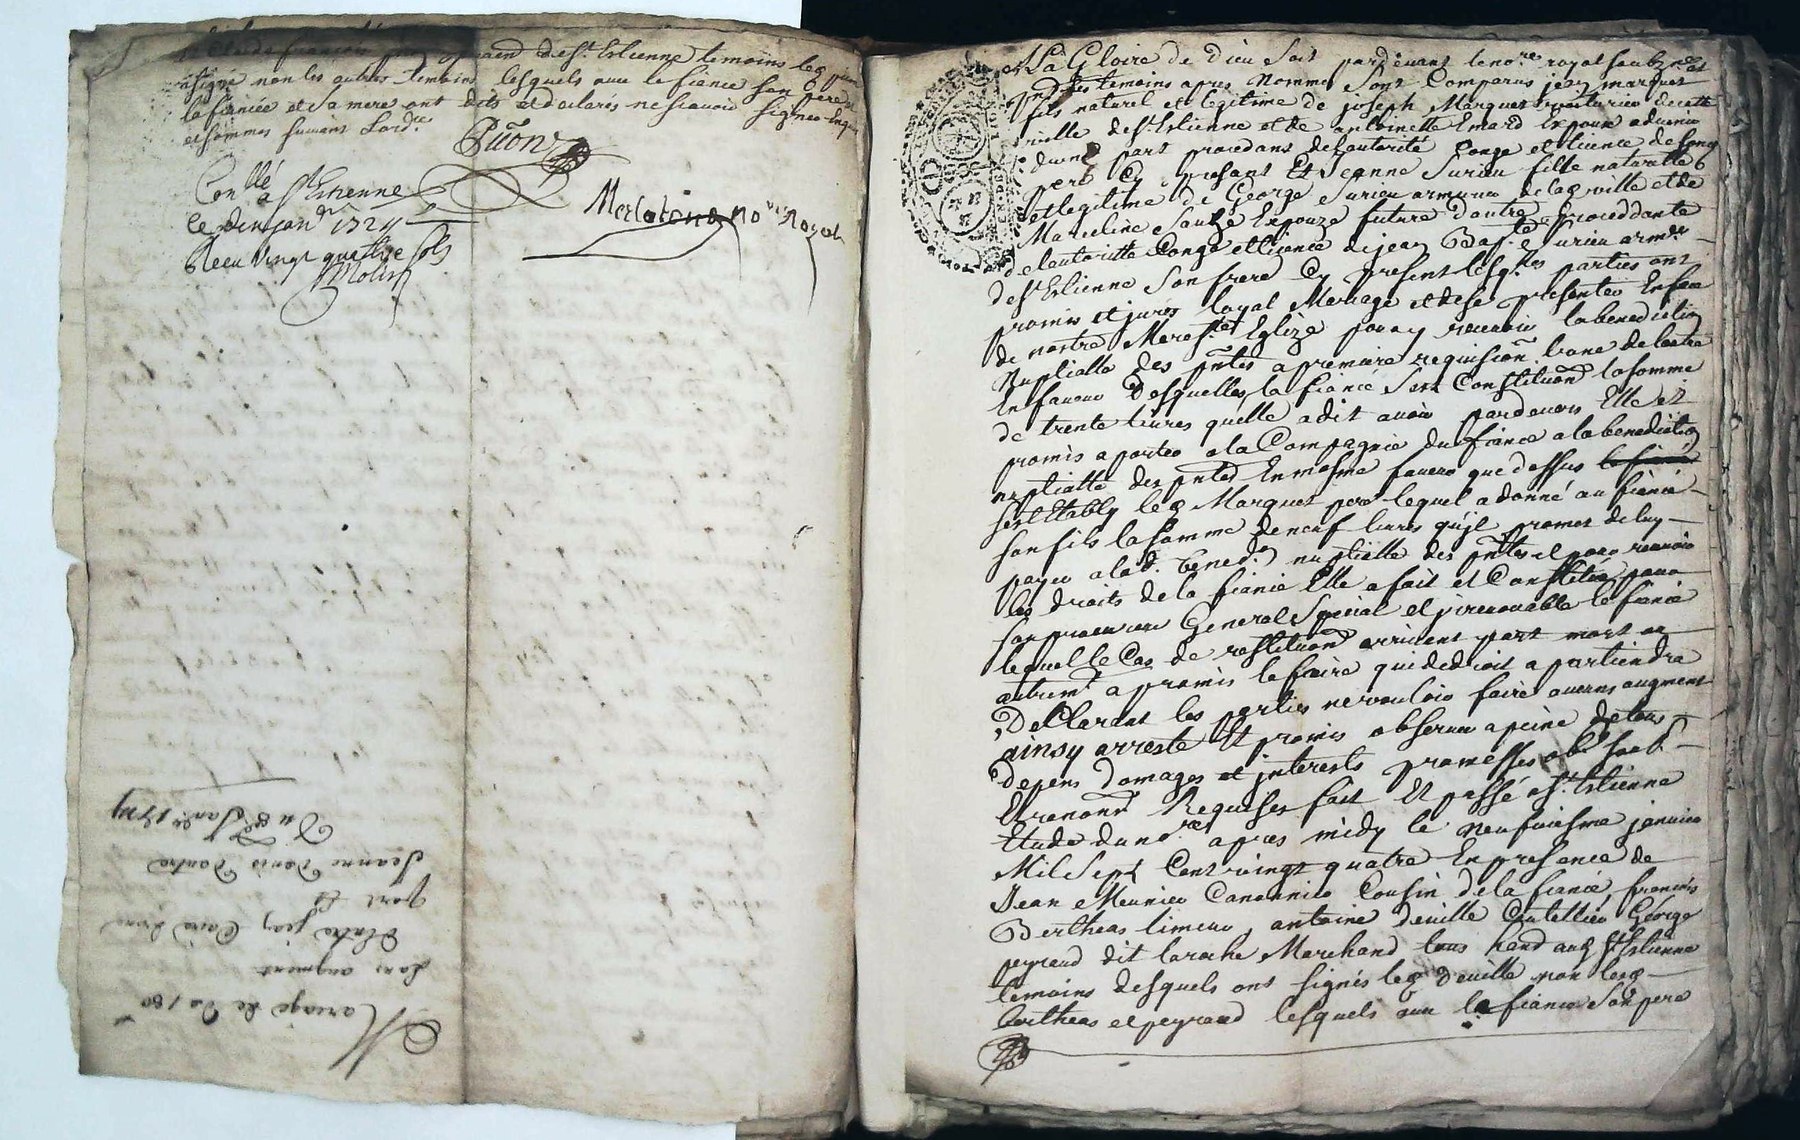 de St Estienne temoins
signé non les autres temoins lesquels avec le fiancé son pere
la fiancée et sa mere ont dit et declarés ne scavoir signer Enquis
et sommés suivant Lord.ce
Con.llé a St Estienne
le dix Jan.r 1724
Receu vingt quattre sols
Molin
No.re Royal
A La Gloire de Dieu soit pardevant le no.re royal soubz.né et
p.nts les temoins apres Nommes sont Comparus jean marquet
fils naturel et legitime de joseph Marquet voiturier de cette
ville de St Estienne et de antoinette Emard Expoux advenir
d'une part procedans de Lautorité Conge et licence de son
pere Cy present Et Jeanne Surieu fille naturelle
et legitime de George Surieu armurier de lad ville et de
Marceline Expouze future d'autre proceddante
de lautoritté Congé et licence de jean Bap.te Surieu arm.er
de St Estienne son frere Cy present lesq.lles parties ont
promis et jurés loyal Mariage et de se presenter En face
de nostre Mere s.te Eglize pour y recevoir la benediction
Nuptialle des p.ntes a premiere requision lune de lautre
En faveur desquelles la fiancé s'est Constituée la somme
de trente livres quelle a dit avoir pardevers Elle et
promis aporter a la Compagnie du fiancé a la benediction
nuptialle des p.ntes En mesme faveur que dessus le fiancé
sest Etably led Marquet pere lequel a donné au fiancé
son fils la somme de neuf livres qu'jl promet de luy
payer a lad. bened.on nuptialle des p.ntes et pour recevoir
les droits de la fiancé Elle a fait et Constitué pour
son procureur General Special et jrrevocable le fiancé
lequel le Cas de restitution arrivent part mort ou
autrem.t a promis le faire qui de droit apartiendra
Declarant les parties ne vouloir faire aucuns augment
ainsy arresté Et promis observer a peine de tous
depens domages et jnterests promesses obl. soub.
Et renon.on Requises fait Et passé a St Estienne
Etude du no.re apres midy le neufviesme janvier
Mil Sept Cent vingt quatre En presence de
Jean Meunier Canonnier Cousin de la fiancé francois
Bertheas limeur, antoine deville Coutellier George
peyraud dit laroche Marchand tous hand aud St Estienne
temoins desquels ont signés led deville non led
bertheas et peyraud lesquels avec le fiancé son pere
Mariage de D. 180
sans augment
Entre jean d'une
part Et
Jeanne d'autre
Du Jan.er 1724